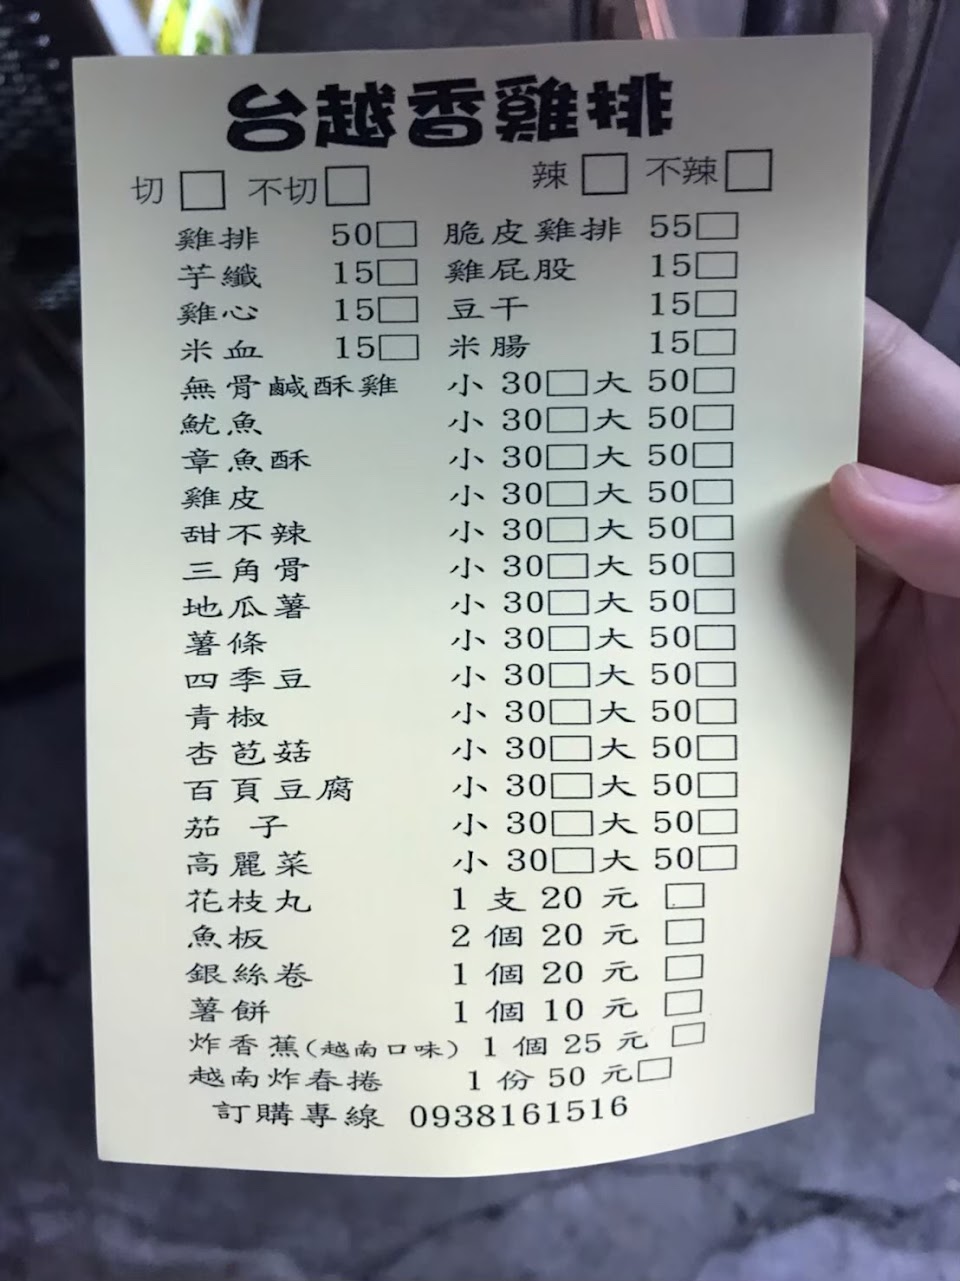 台越香雞排
切 □ 不切 □ 辣 □ 不辣 □
雞排 50□ 脆皮雞排 55□
芋纖 15□ 雞屁股 15□
雞心 15□ 豆干 15□
米血 15□ 米腸 15□
無骨鹹酥雞 小 30□大 50□
魷魚 小 30□大 50□
章魚酥 小 30□大 50□
雞皮 小 30□大 50□
甜不辣 小 30□大 50□
三角骨 小 30□大 50□
地瓜薯 小 30□大 50□
薯條 小 30□大 50□
四季豆 小 30□大 50□
青椒 小 30□大 50□
杏苞菇 小 30□大 50□
百頁豆腐 小 30□大 50□
茄 子 小 30□大 50□
高麗菜 小 30□大 50□
花枝丸 1 支 20 元 □
魚板 2 個 20 元 □
銀絲卷 1 個 20 元 □
薯餅 1 個 10 元 □
炸香蕉(越南口味) 1 個 25 元 □
越南炸春捲 1 份 50 元□
訂購專線 0938161516